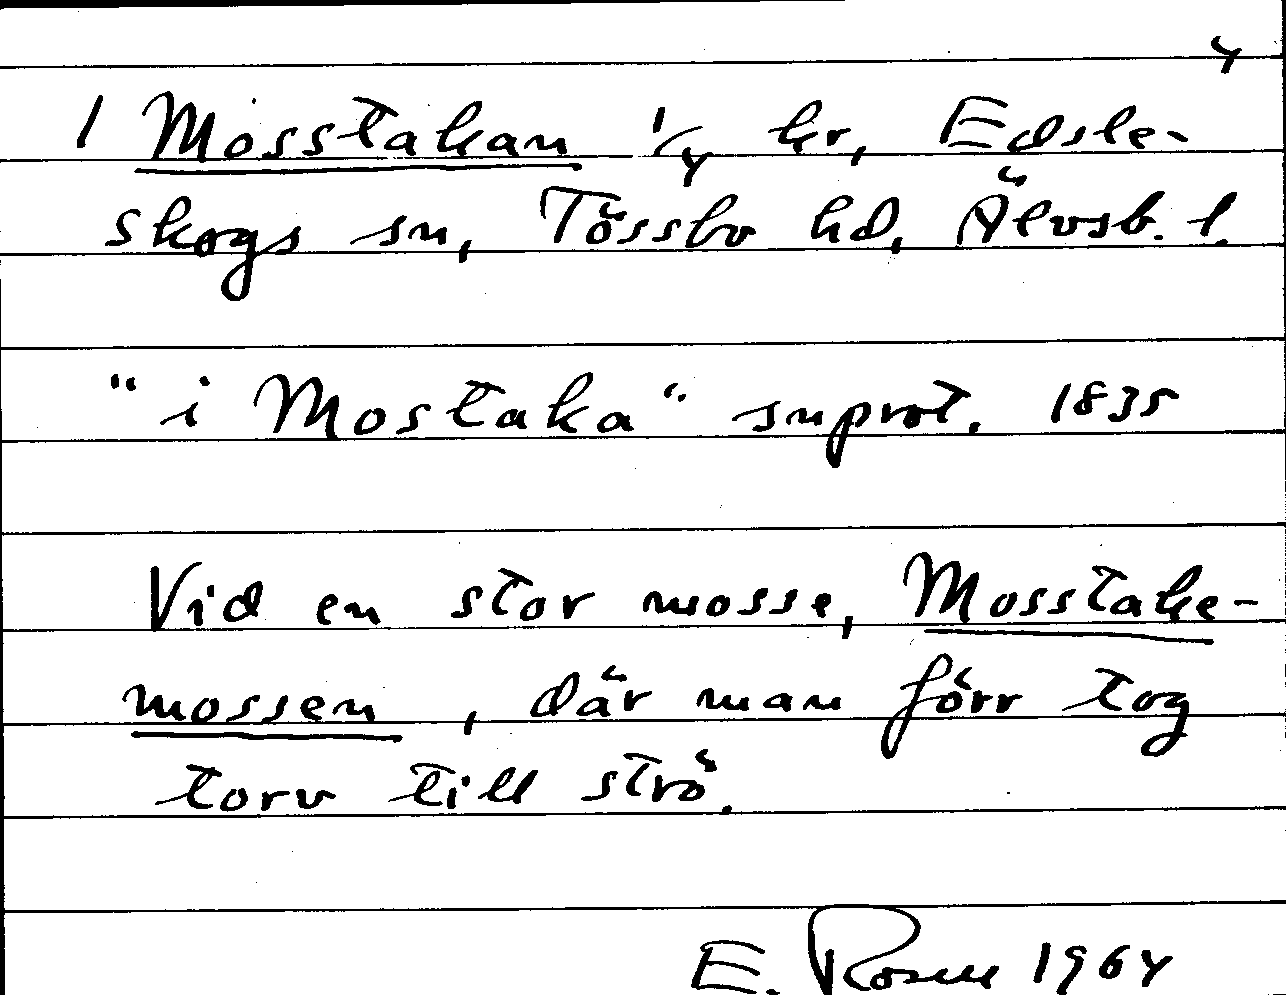 4
1 Mosstakan 1/4 kr, Edsle-
skogs sn, Tössbo hd, Älvsb. l.
"i Mostaka" snprot. 1835
Vid en stor mosse, Mosstake-
mossen, där man förr tog
torv till strö.
E. Rosell 1964